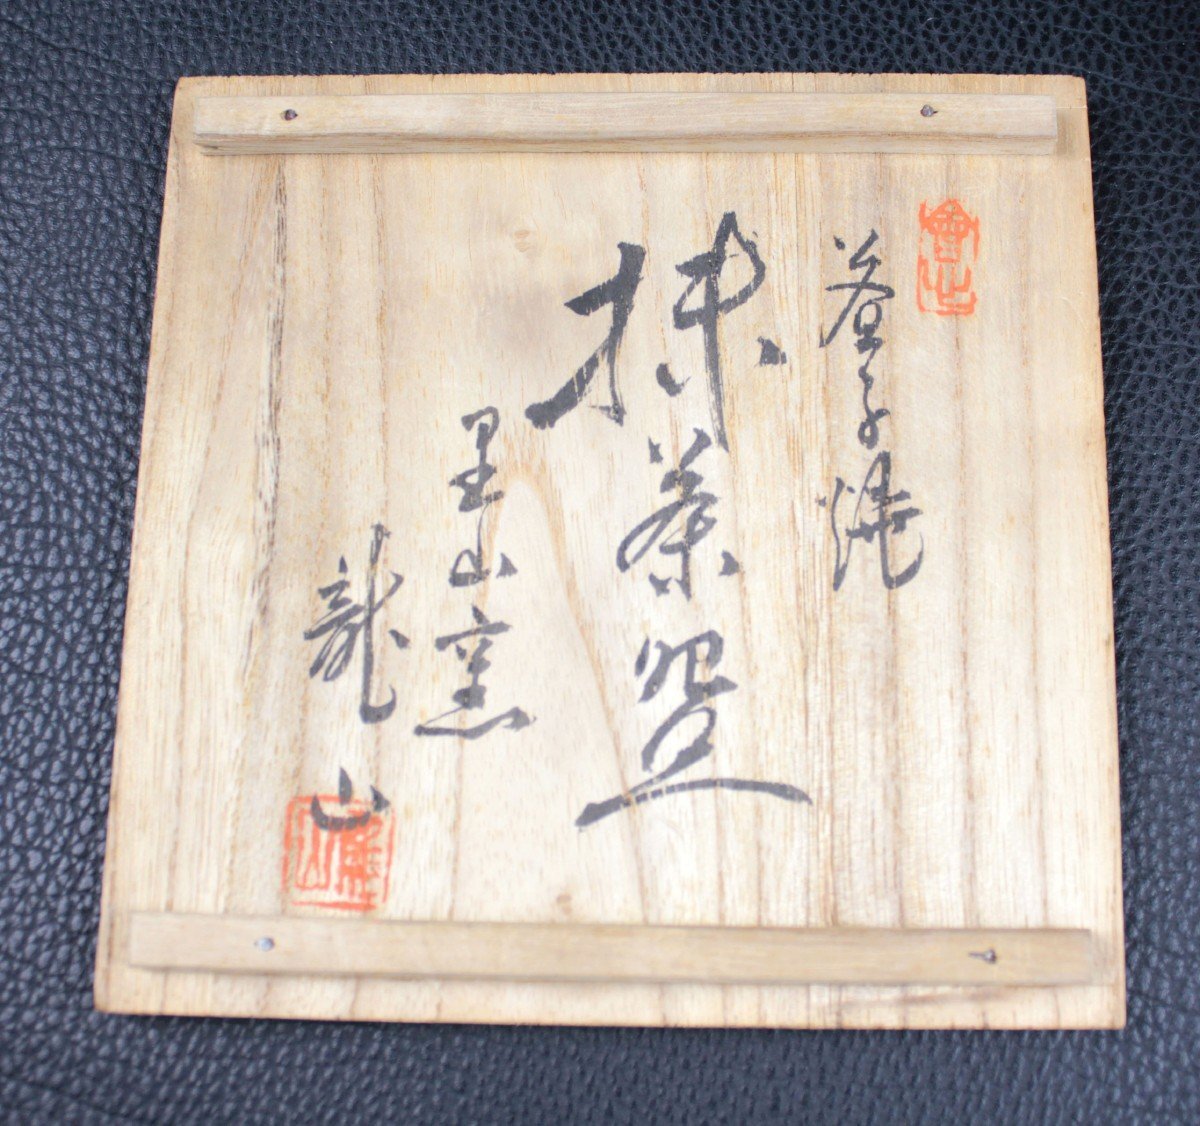 益子焼
抹茶盌
里山窯
龍山